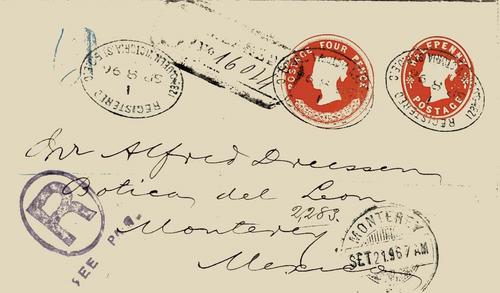 1601
POSTAGE FOUR PENCE
HALFPENNY
POSTAGE
REGISTERED
123 QUEEN VICTORIA ST
1
SP 8 96
REGISTERED
Alfred Dreessen
Botica del Leon
Monterey
2,283.
Mexico
R
SEE
MONTEREY
SET 21.96 7 AM